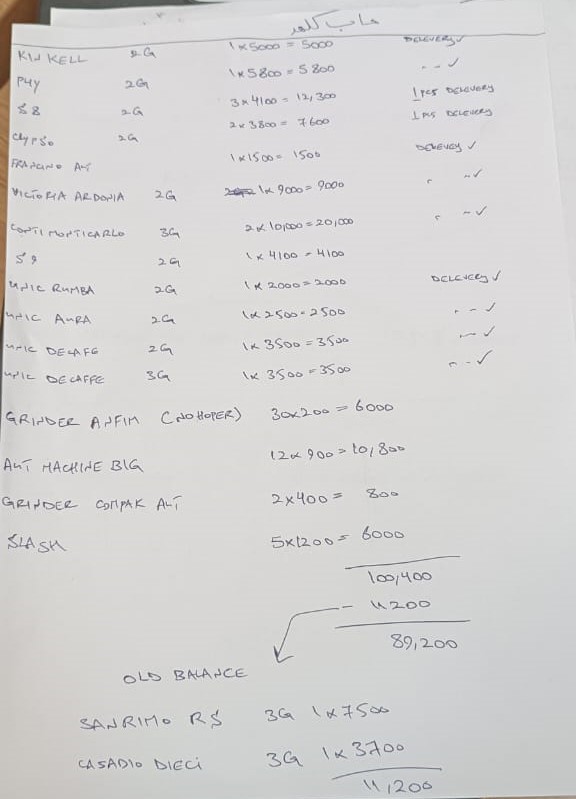 حساب كلدور
KIN KELL 2G 1x5000 = 5000 DELEVERY ✓
P4Y 2G 1x5800 = 5800 " - ✓
S8 2G 3x4100 = 12,300 1 PCS DELEVERY
CLYPSO 2G 2x3800 = 7600 1 PCS DELEVERY
FRANCINO AUT 1x1500 = 1500 DELEVEY ✓
VICTORIA ARDONIA 2G 1x9000 = 9000 " - ✓
CONTI MONTICARLO 3G 2x10,000 = 20,000 " - ✓
S9 2G 1x4100 = 4100
UNIC RUMBA 2G 1x2000 = 2000 DELEVERY ✓
UNIC AURA 2G 1x2500 = 2500 " - ✓
UNIC DECAFE 2G 1x3500 = 3500 " - ✓
UNIC DECAFFE 3G 1x3500 = 3500 " - ✓
GRINDER ANFIM (NO HOPER) 30x200 = 6000
AUT MACHINE BIG 12x900 = 10,800
GRINDER COMPAK AUT 2x400 = 800
SLASH 5x1200 = 6000
100,400
- 11200
89,200
OLD BALANCE
SANRIMO RS 3G 1x7500
CASADIO DIECI 3G 1x3700
11,200